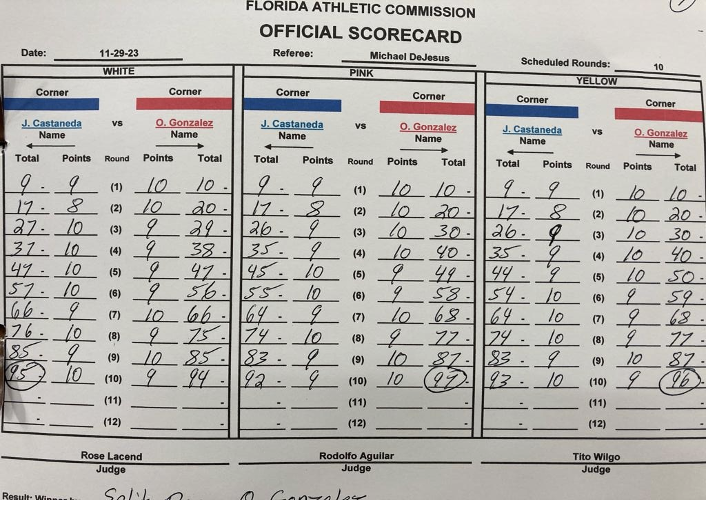 FLORIDA ATHLETIC COMMISSION
OFFICIAL SCORECARD
Date: 11-29-23 Referee: Michael DeJesus Scheduled Rounds: 10
WHITE PINK YELLOW
Corner Corner Corner Corner Corner Corner
J. Castaneda vs O. Gonzalez J. Castaneda vs O. Gonzalez J. Castaneda vs O. Gonzalez
Name Name Name Name Name Name
Total Points Round Points Total Total Points Round Points Total Total Points Round Points Total
9 - 9 (1) 10 10 - 9 - 9 (1) 10 10 - 9 - 9 (1) 10 10 -
17 - 8 (2) 10 20 - 17 - 8 (2) 10 20 - 17 - 8 (2) 10 20 -
27 - 10 (3) 9 29 - 26 - 9 (3) 10 30 - 26 - 9 (3) 10 30 -
37 - 10 (4) 9 38 - 35 - 9 (4) 10 40 - 35 - 9 (4) 10 40 -
47 - 10 (5) 9 47 - 45 - 10 (5) 9 49 - 44 - 9 (5) 10 50 -
57 - 10 (6) 9 56 - 55 - 10 (6) 9 58 - 54 - 10 (6) 9 59 -
66 - 9 (7) 10 66 - 64 - 9 (7) 10 68 - 64 - 10 (7) 9 68 -
76 - 10 (8) 9 75 - 74 - 10 (8) 9 77 - 74 - 10 (8) 9 77 -
85 - 9 (9) 10 85 - 83 - 9 (9) 10 87 - 83 - 9 (9) 10 87 -
95 - 10 (10) 9 94 - 92 - 9 (10) 10 97 - 93 - 10 (10) 9 96 -
- (11) - - (11) - - (11) -
- (12) - - (12) - - (12) -
Rose Lacend Rodolfo Aguilar Tito Wilgo
Judge Judge Judge
Result: O. Gonzalez